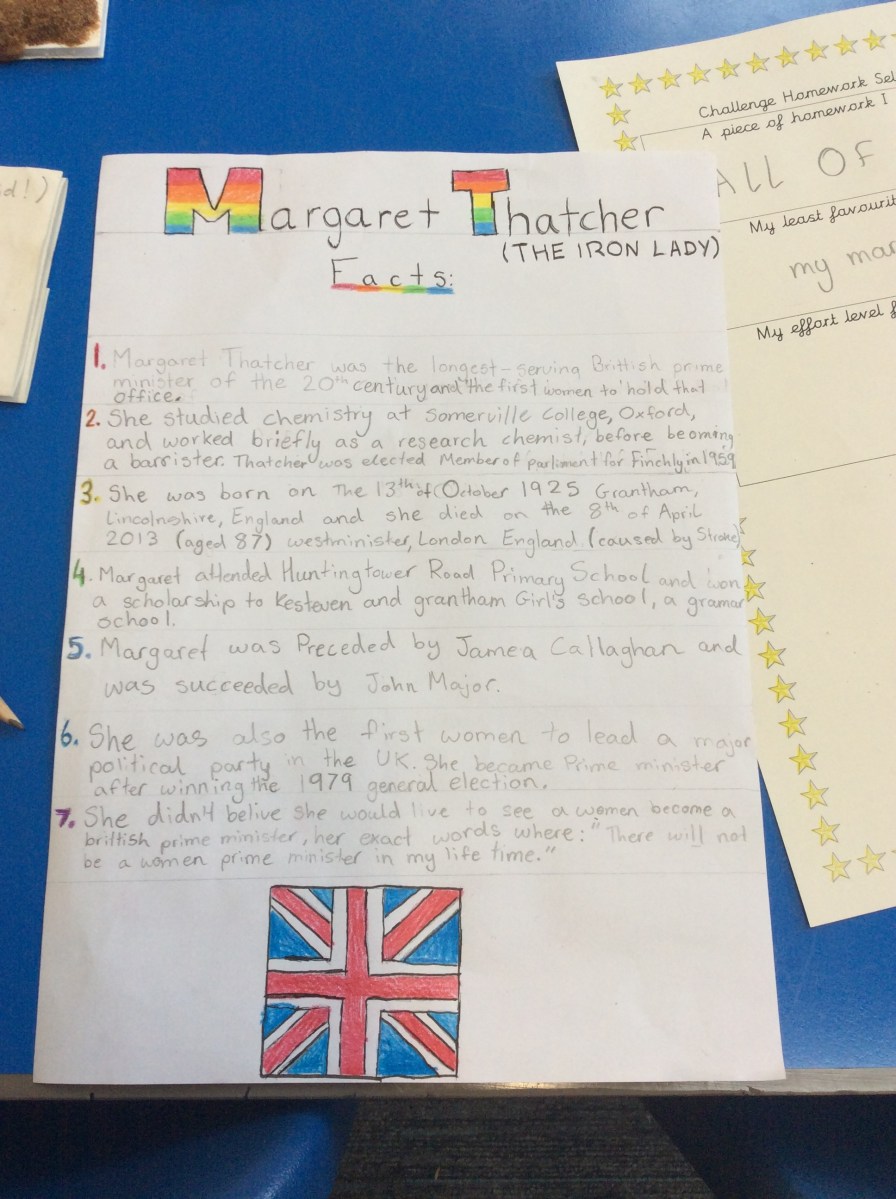 d!)
Challenge Homework Sel
A piece of homework I
ALL OF
My least favourit
my mar
My effort level f
Margaret Thatcher
(THE IRON LADY)
Facts:
1. Margaret Thatcher was the longest-serving Brittish prime
minister of the 20th century and the first women to hold that
office.
2. She studied chemistry at Somerville College, Oxford,
and worked briefly as a research chemist, before becoming
a barrister. Thatcher was elected Member of parliment for Finchly in 1959
3. She was born on The 13th of October 1925 Grantham,
Lincolnshire, England and she died on the 8th of April
2013 (aged 87) westminister, London England (caused by Stroke)
4. Margaret attended Huntingtower Road Primary School and won
a scholarship to Kesteven and grantham Girl's School, a gramar
school.
5. Margaret was Preceded by Jamea Callaghan and
was succeeded by John Major.
6. She was also the first women to lead a major
political party in the UK. She became Prime minister
after winning the 1979 general election.
7. She didn't belive she would live to see a women become a
brittish prime minister, her exact words where: "There will not
be a women prime minister in my life time."